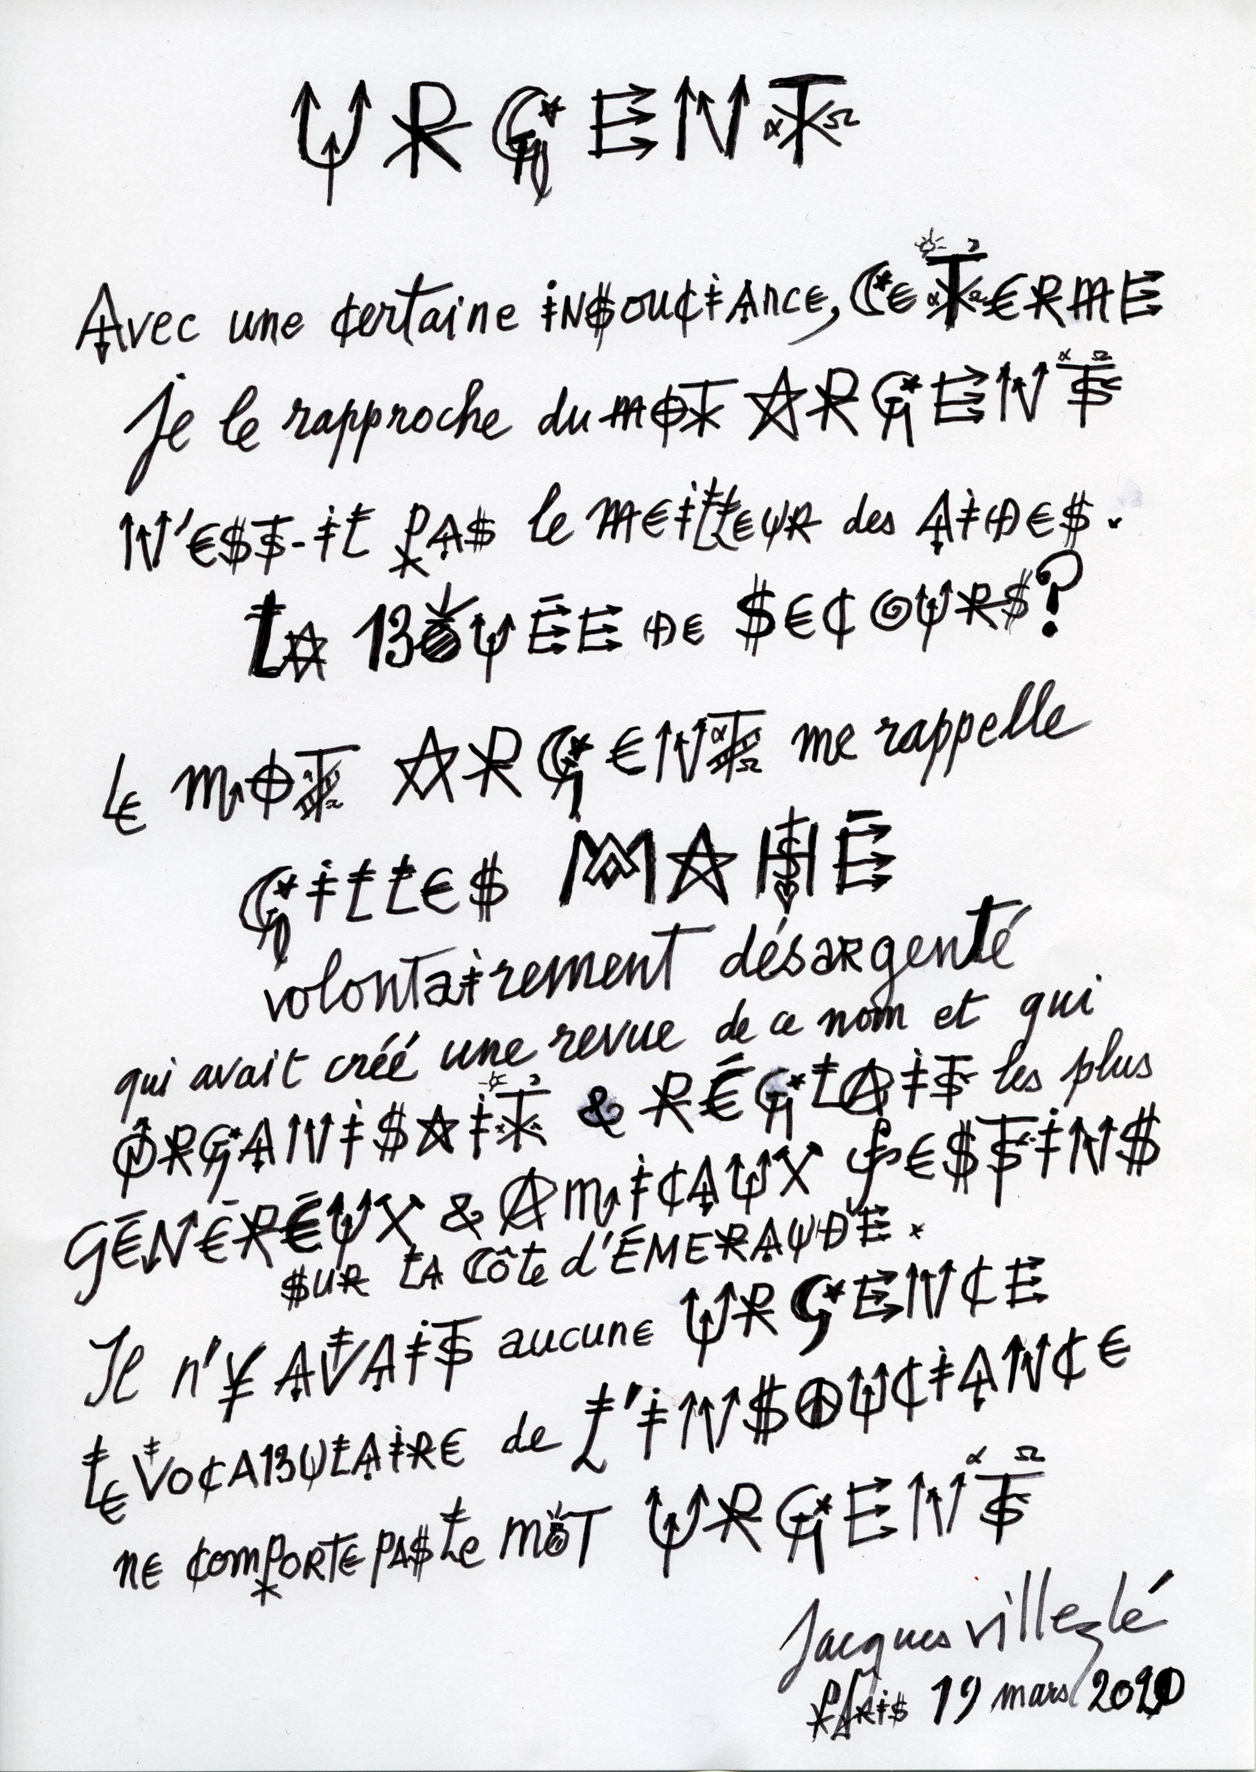 URGENT
Avec une certaine insouciance, CE TERME
je le rapproche du MOT ARGENT
N'EST-iL PAS le MEiLLEUR des AiDES.
LA BOUÉE DE SECOURS?
LE MOT ARGENT me rappelle
GiLLES MAHÉ
volontairement désargenté
qui avait créé une revue de ce nom et qui
ORGANiSAiT & RÉGLAiT les plus
GÉNÉREUX & AMiCAUX FESTiNS
SUR LA Côte d'ÉMERAUDE.
Il n'Y AVAiT aucune URGENCE
LE VOCABULAiRE de L'iNSOUCiANCE
NE COMPORTE PAS Le MOT URGENT
Jacques villeglé
PARiS 19 mars 2020